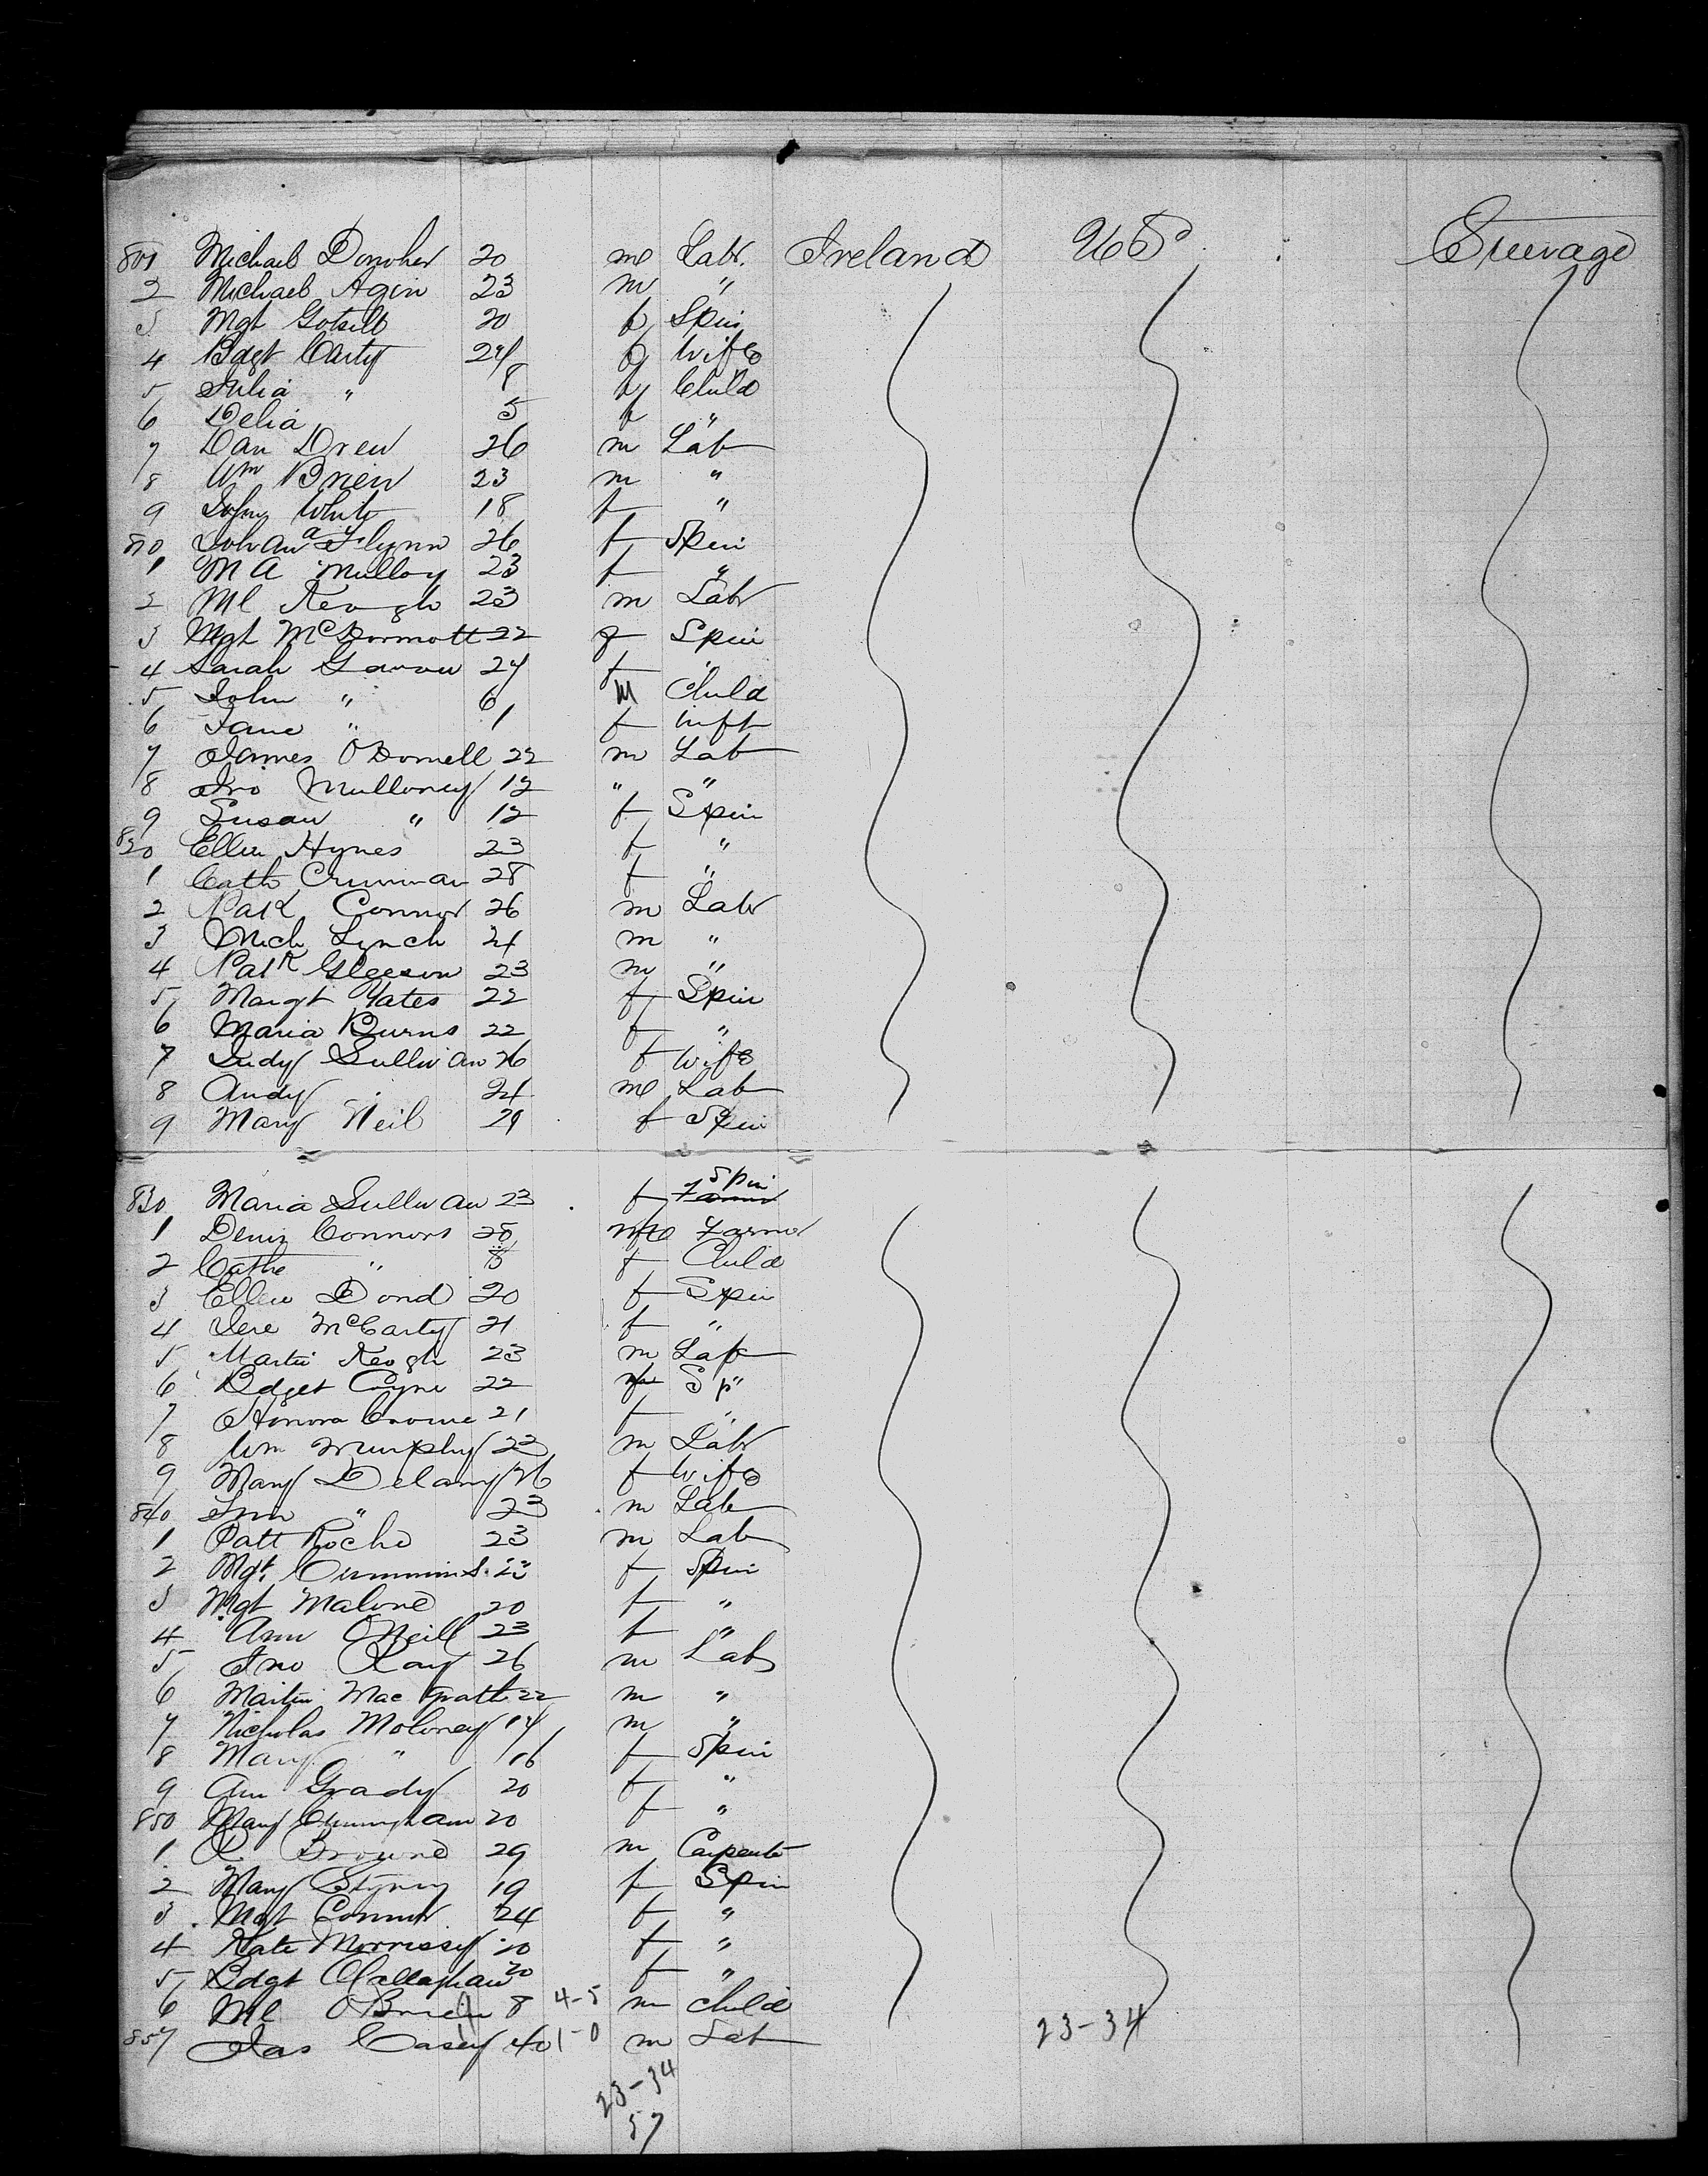 801 Michael Donoher 20 m Labr. Ireland US Steerage
2 Michael Agin 23 m "
3 Mgt 20 f Spin
4 Bdgt Carty 24 f Wife
5 Julia " 8 f Child
6 Delia 5 f "
7 Dan Drew 26 m Lab
8 Wm Brien 23 m "
9 John White 18 f "
810 Johana Flynn 26 f Spin
1 M A Mulloy 23 f "
2 Ml Keogh 23 m Labr
3 Mgt McDormott 22 f Spin
4 Sarah 24 f "
5 John " 6 M Child
6 Jane " 1 f Inft
7 James O'Donnell 22 m Lab
8 Jno Mulloney 12 " "
9 Susan " 12 f Spin
820 Ellen Hynes 23 f "
1 Cath 28 f "
2 Patk Connor 26 m Labr
3 Mich Lynch 24 m "
4 Patk Gleeson 23 m "
5 Margt Yates 22 f Spin
6 Maria Burns 22 f "
7 Judy Sullivan 26 f Wife
8 Andy 24 m Lab
9 Mary Neil 21 f Spin
830 Maria Sullivan 23 f Spin
1 Denis Connors 28 m Farmer
2 Cathe " 8 f Child
3 Ellen Dond 20 f Spin
4 Jere McCarty 21 f "
5 Martin Keogh 23 m Lab
6 Bdget Coyne 22 Sp"
7 Honora Crowe 21 f "
8 Wm Murphy 22 m Labr
9 Mary Delany 26 f Wife
840 Jno " 23 m Lab
1 Patt Roche 23 m Lab
2 Mgt. Cummins. 22 f Spin
3 Mgt Malone 20 f "
4 Ann O'Neill 23 f "
5 Jno Ray 26 m Lab
6 Martin Mac Grath 22 m "
7 Nicholas Moloney 14 m "
8 Mary " 16 f Spin
9 Ann Grady 20 f "
850 Mary Cunningham 20 f "
1 Browne 29 m Carpenter
2 Mary 19 f Spin
3 Mgt Connor 24 f "
4 Kate Morrissey 20 f "
5 Bdgt O'Callaghan 20 f "
6 Ml O'Brien 8 4-5 m Child
857 Jas Casey 40 1-0 m Lab 23-34
23-34
57